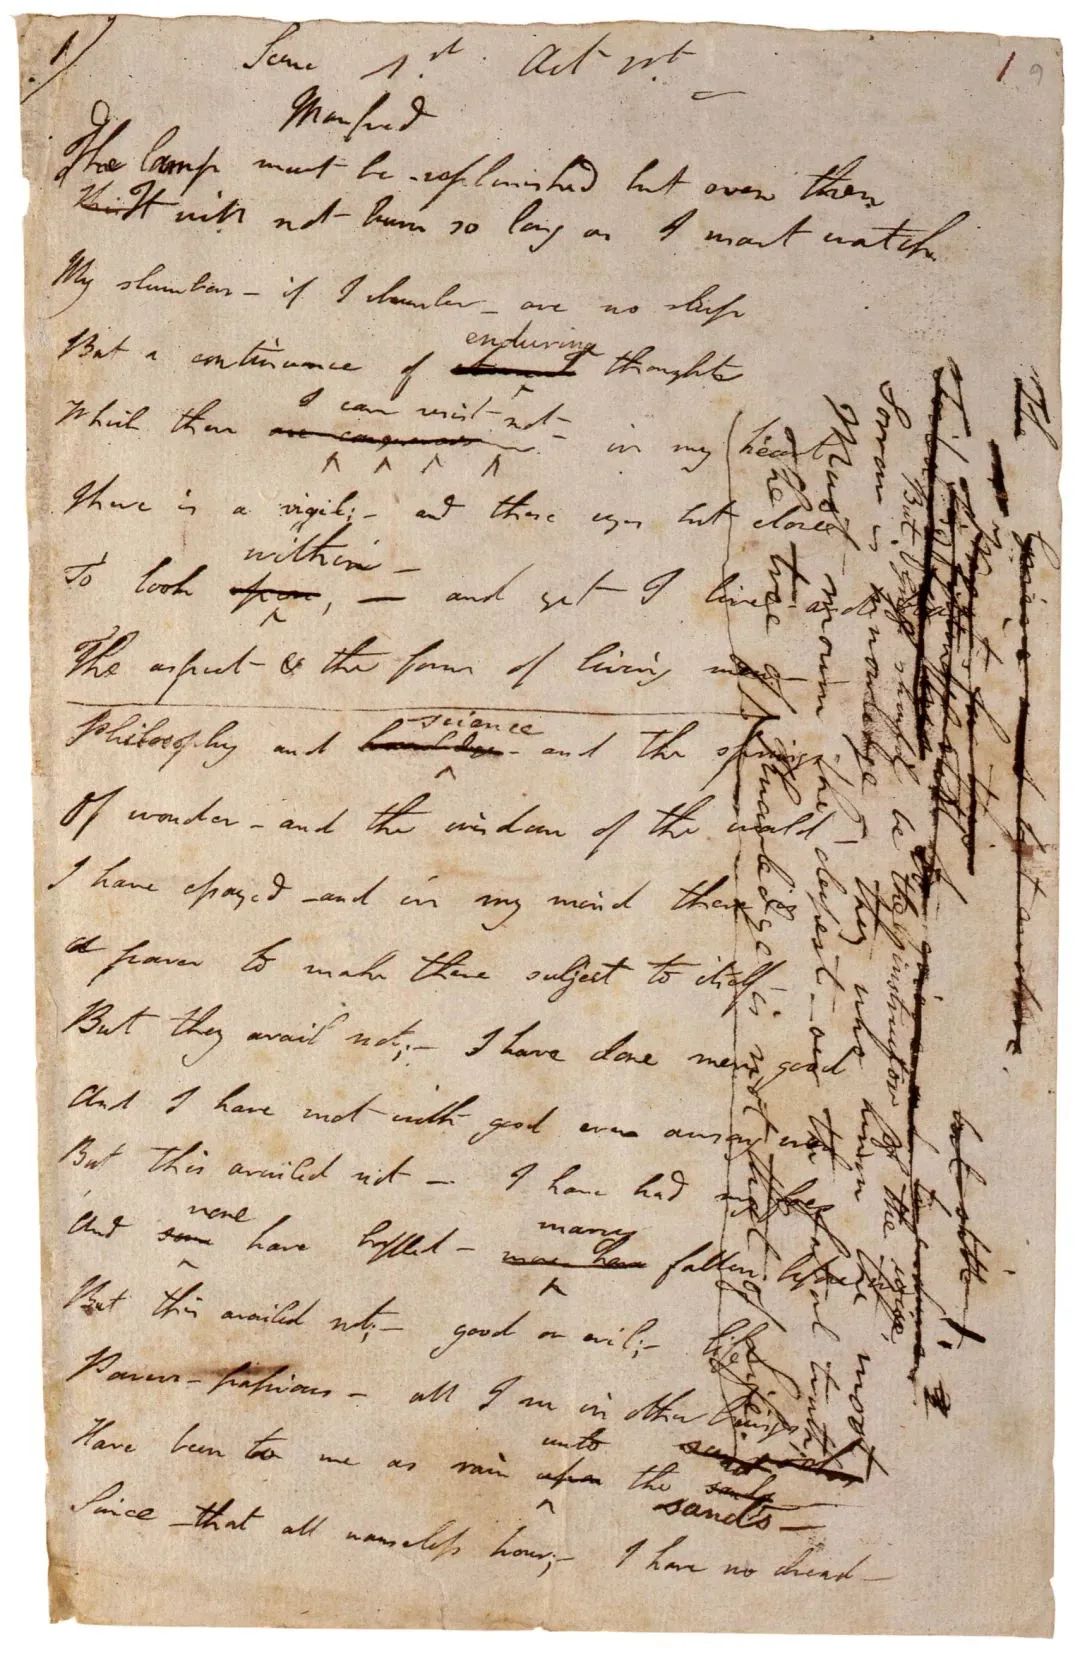 1)
1 9
Scene 1st. Act 1st
Manfred
The lamp must be replenished but even then
It will not burn so long as I must watch.
My slumbers — if I slumber — are no sleep
enduring
But a continuance of thought
I can resist not
Which then — in my heart
There is a vigil; — and these eyes but close
within —
To look , — and yet I live and bear
The aspect & the form of living men
science
Philosophy and — and the springs
Of wonder — and the wisdom of the world —
I have essayed — and in my mind there is
A power to make these subject to itself —
But they avail not; — I have done men good
And I have met with good even among men
But this availed not — I have had my foes
none many
And some have baffled — fallen before me
But this availed not; — good or evil; — life
Powers — passions — all I see in other beings
unto
Have been to me as rain upon the
sands —
Since that all nameless hour; — I have no dread —
But Grief should be the instructor of the wise,
Sorrow is knowledge they who know the most
Must mourn the deepest o'er the fatal truth
The tree of knowledge is not that of Life.